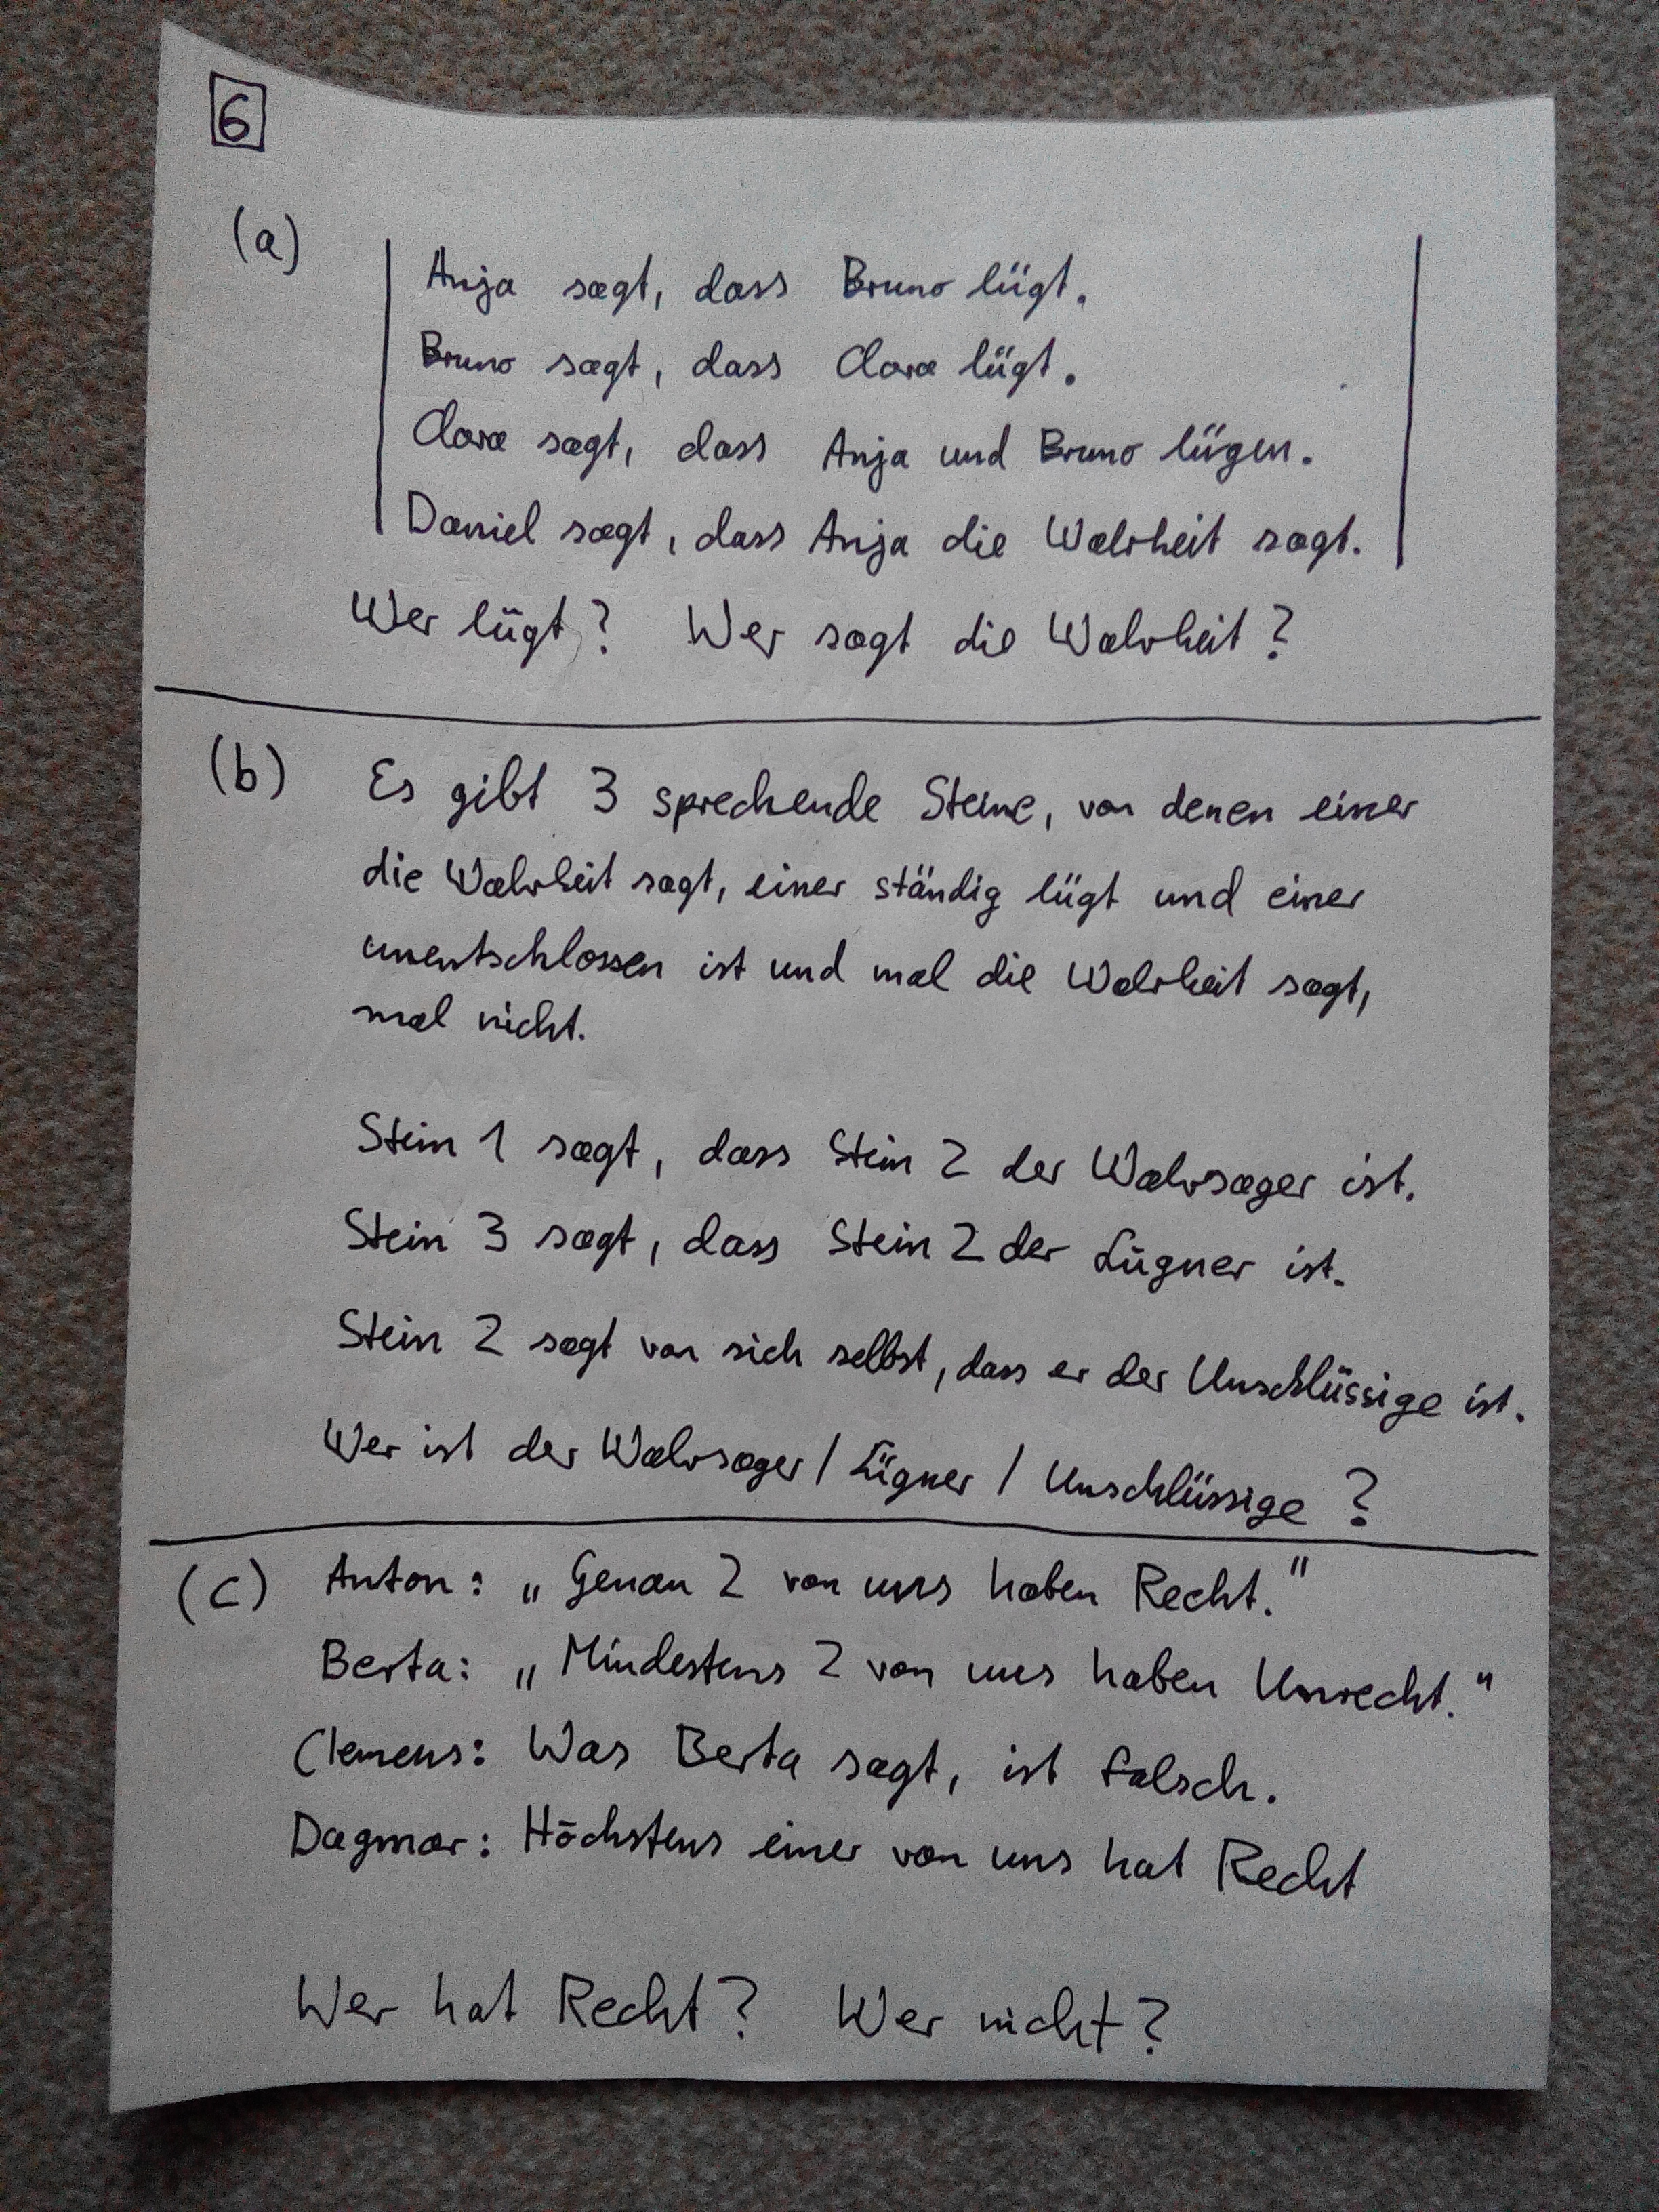 6
(a)
Anja sagt, dass Bruno lügt.
Bruno sagt, dass Clara lügt.
Clara sagt, dass Anja und Bruno lügen.
Daniel sagt, dass Anja die Wahrheit sagt.
Wer lügt? Wer sagt die Wahrheit?
(b) Es gibt 3 sprechende Steine, von denen einer
die Wahrheit sagt, einer ständig lügt und einer
unentschlossen ist und mal die Wahrheit sagt,
mal nicht.
Stein 1 sagt, dass Stein 2 der Wahrsager ist.
Stein 3 sagt, dass Stein 2 der Lügner ist.
Stein 2 sagt von sich selbst, dass er der Unschlüssige ist.
Wer ist der Wahrsager / Lügner / Unschlüssige ?
(c) Anton: „Genau 2 von uns haben Recht."
Berta: „Mindestens 2 von uns haben Unrecht."
Clemens: Was Berta sagt, ist falsch.
Dagmar: Höchstens einer von uns hat Recht
Wer hat Recht? Wer nicht?